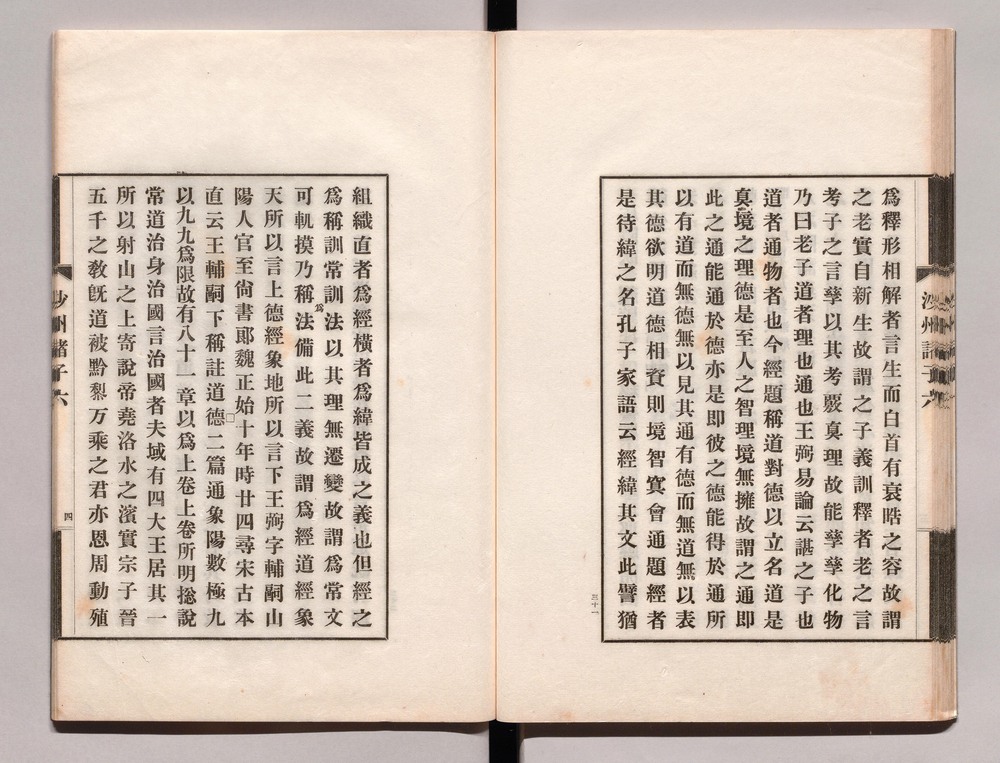 爲釋形相解者言生而白首有衰晧之容故謂
之老實自新生故謂之子義訓釋者老之言
考子之言孳以其考覈真理故能孳孳化物
乃曰老子道者理也通也王弼易論云諶之子也
道者通物者也今經題稱道對德以立名道是
真境之理德是至人之智理境無擁故謂之通即
此之通能通於德亦是即彼之德能得於通所
以有道而無德無以見其通有德而無道無以表
其德欲明道德相資則境智㝠會通題經者
是待緯之名孔子家語云經緯其文此譬猶
三十一
沙州諸子六
組織直者爲經橫者爲緯皆成之義也但經之
爲稱訓常訓法以其理無遷變故謂爲常文
可軌摸乃稱爲法備此二義故謂爲經道經象
天所以言上德經象地所以言下王弼字輔嗣山
陽人官至尙書郎魏正始十年時廿四尋宋古本
直云王輔嗣下稱註道德二篇通象陽數極九
以九九爲限故有八十一章以爲上卷上卷所明揔說
常道治身治國言治國者夫域有四大王居其一
所以射山之上寄說帝堯洛水之濱實宗子晉
五千之教旣道被黔黎万乘之君亦恩周動殖
沙州諸子六
四